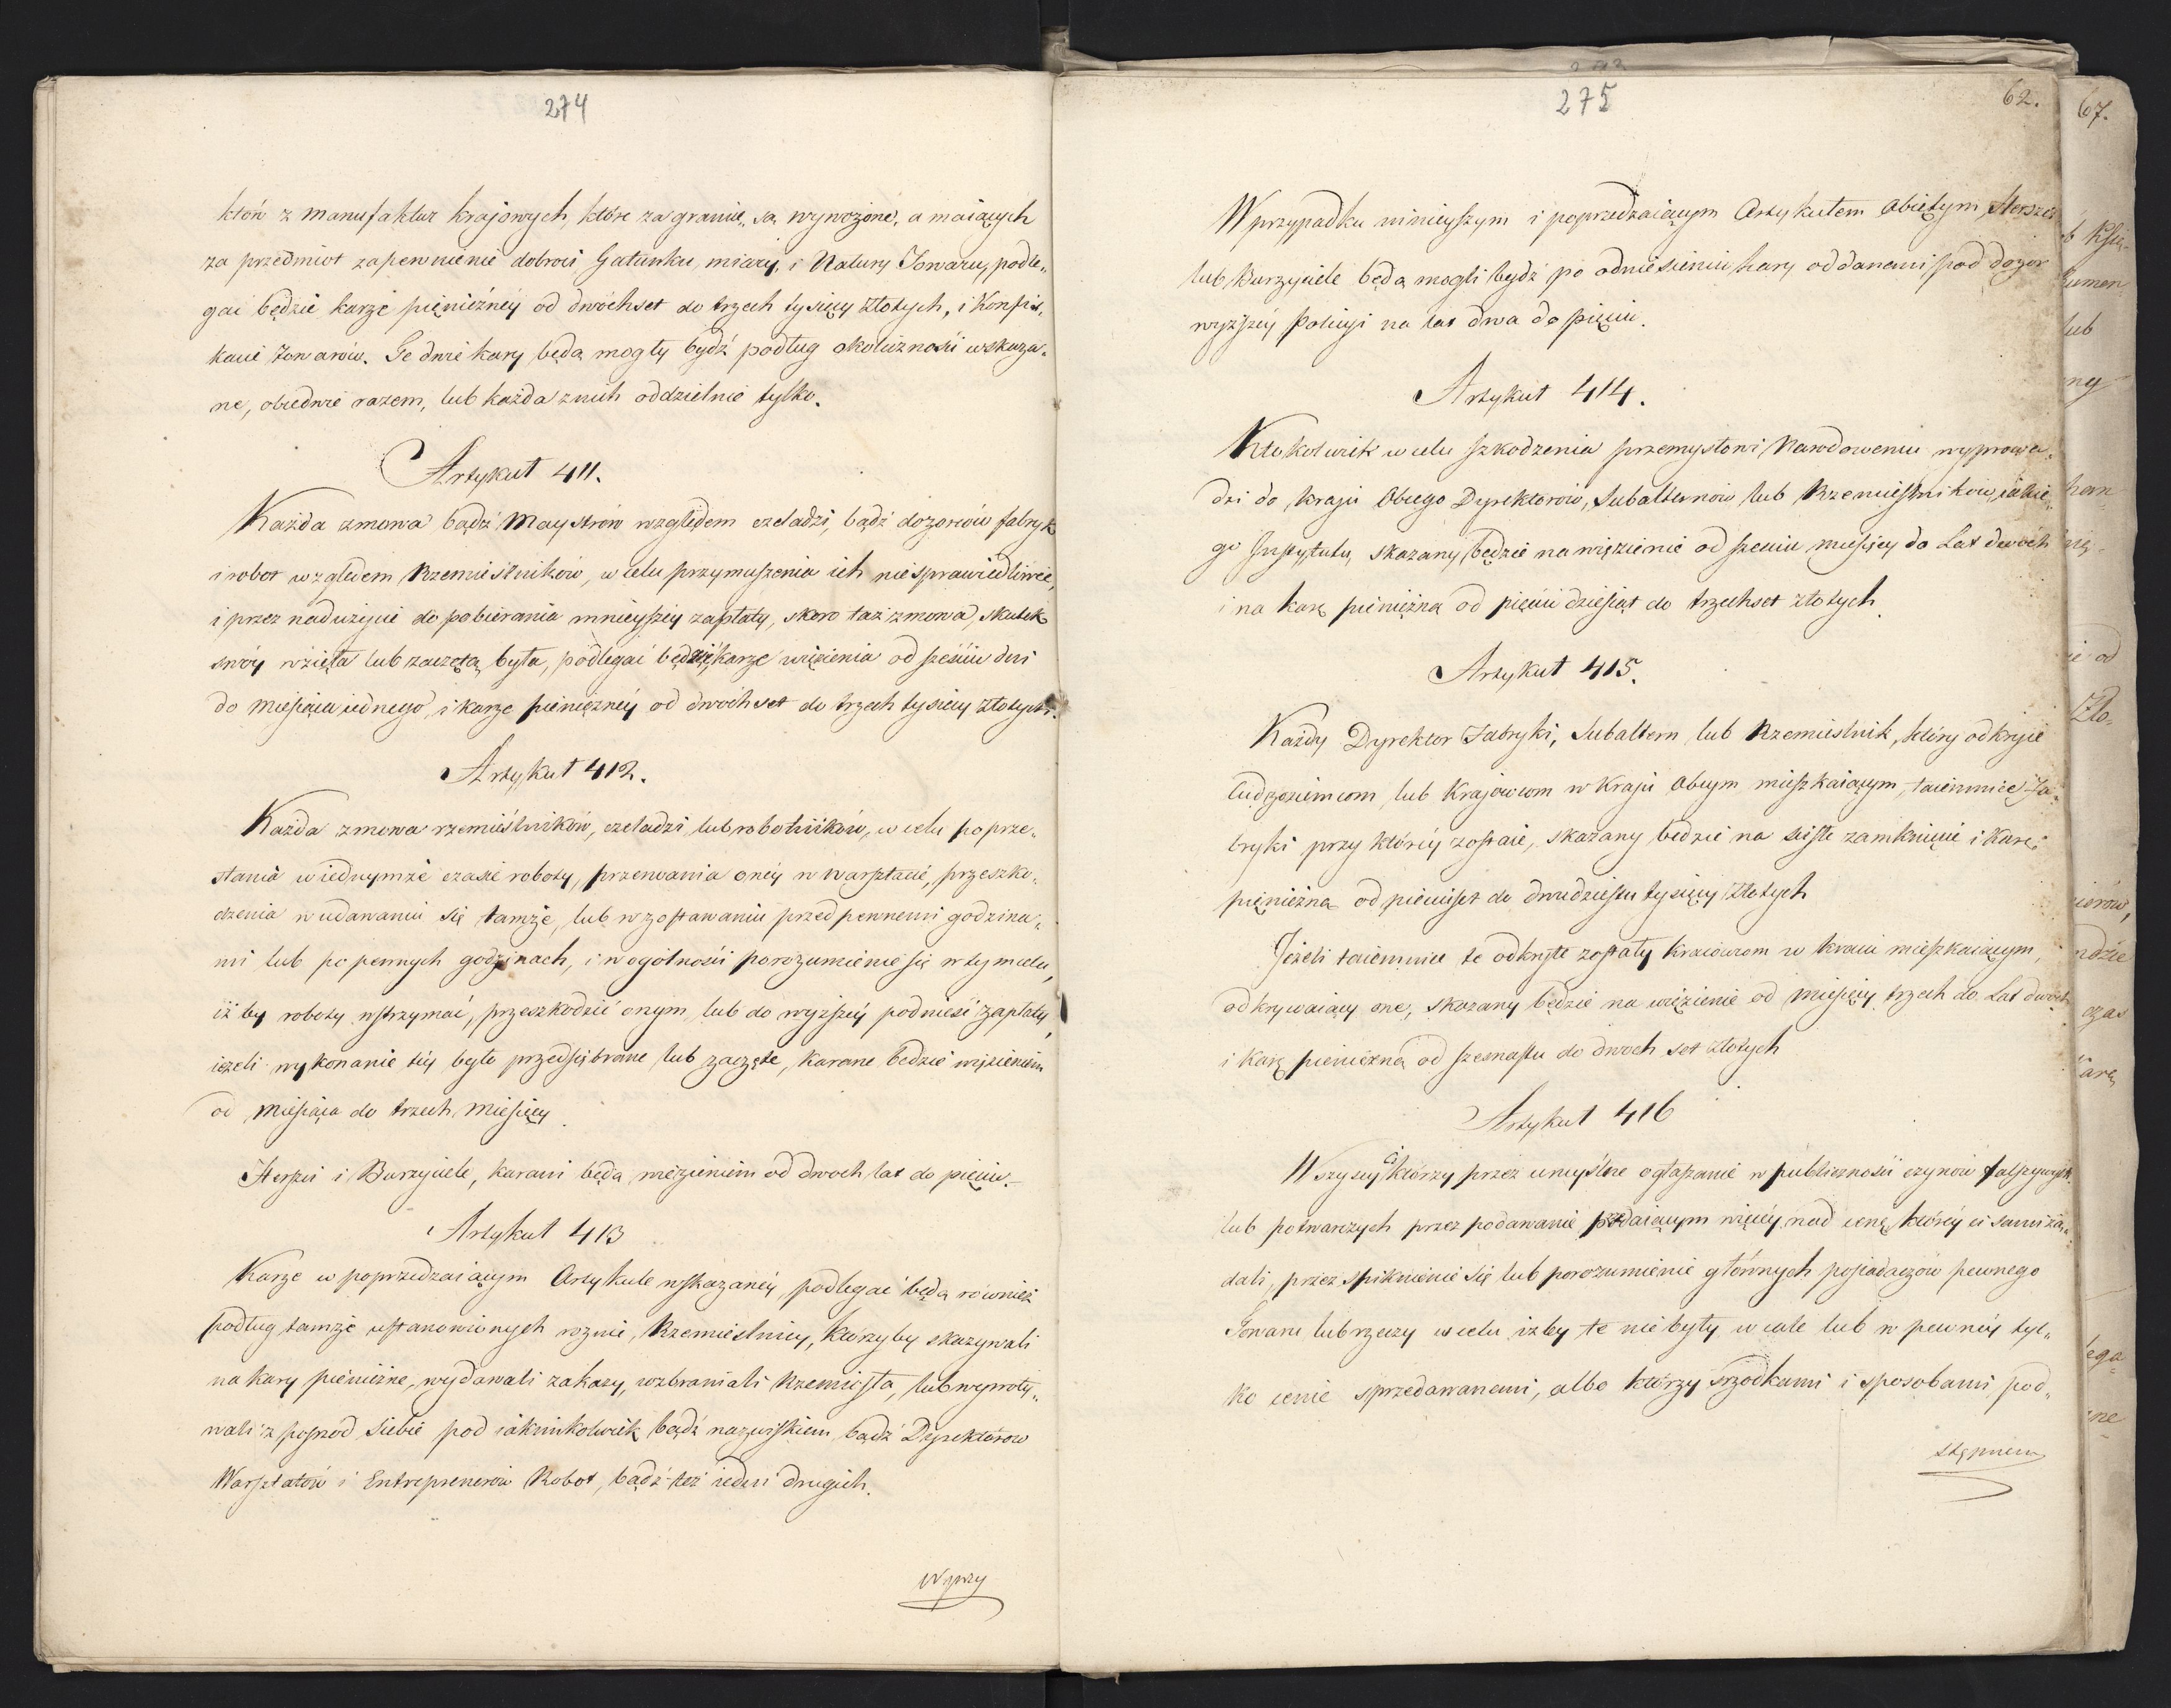 274
któw z manufaktur krajowych, które za granic„ są wywożone, a maiących
za przedmiot zapewnienie dobroci Gatunku, miary, i Natury Towaru, podle„
gać będzie karze pieniężnéy od dwóchset do trzech tysięcy Złotych, i Konfis„
kacie Towarów. Te dwie kary będą mogły bydź podług okoliczności wskaza„
ne, obiedwie razem, lub każda z nich oddzielnie tylko.
Artykuł 411.
Każda zmowa bądź Maystrów względem czeladzi, bądź dozorców fabryk
i robot względem Rzemieślników, w celu przymuszenia ich niesprawiedliwie,
i przez nadużycie do pobierania mnieyszéy zapłaty, skoro taż zmowa, skutek
swóy wzięła lub zaczętą była, podlegać będzie karze więzienia od sześciu dni
do miesiąca iednego, i karze pieniężnéy od dwóchset do trzech tysięcy złotych.
Artykuł 412.
Każda zmowa rzemieślników, czeladzi, lub robotników, w celu poprze„
stania w iednymże czasie roboty, przerwania onéy w warsztacie, przeszko„
dzenia w udawaniu się tamże, lub w zostawaniu przed pewnemi godzina„
mi lub po pewnych godzinach, i w ogólności porozumienie się w tym celu,
iż by roboty wstrzymać, przeszkodzić onym, lub do wyższéy podnieść zapłaty,
ieżeli wykonanie téy było przedsiębrane lub zaczęte, karane będzie więzieniem
od miesiąca do trzech miesięcy.
Herszci i Burzyciele, karani będą więzieniem od dwóch lat do pięciu.–
Artykuł 413
Karze w poprzedzaiącym Artykule wskazanéy, podlegać będą również
podług tamże ustanowionych różnic, Rzemieślnicy, którzyby skazywali
na kary pieniężne, wydawali zakazy, wzbraniali Rzemiosła, lub wywoły„
wali z pośród siebie pod iakimkolwiek bądź nazwiskiem bądź Dyrektorów
Warsztatów i Entreprenerów Robot, bądź też iedni drugich.
W przy
275
62.
W przypadku ninieyszym i poprzedzaiącym Artykułem obiętym, Herszci
lub Burzyciele będą mogli bydź po odniesieniu kary oddanemi pod dozór
wyższéy Policyi na lat dwa do pięciu.
Artykuł 414.
Ktokolwiek w celu szkodzenia przemysłowi Narodowemu wyprowa„
dzi do kraju Obcego Dyrektorów, Subalternów lub Rzemieślników, iakie„
go Instytutu, skazany będzie na więzienie od sześciu miesięcy do Lat dwóch
i na karę pieniężną od pięciudziesiąt do trzechset złotych.
Artykuł 415.
Każdy Dyrektor Fabryki, Subaltern lub Rzemieślnik, który odkryie
Cudzoziemcom, lub Krajowcom w Kraju Obcym mieszkaiącym, taiemnice Fa„
bryki przy któréy zostaie, skazany będzie na ścisłe zamknięcie i karę
pieniężną od pięciuset do dwudziestu tysięcy Złotych
Jeżeli taiemnice te odkryte zostały kraiowcom w kraiu mieszkaiącym,
odkrywaiący one, skazany będzie na więzienie od miesięcy trzech do Lat dwóch
i karę pieniężną od szesnastu do dwóch set złotych
Artykuł 416
Wszyscy Ci którzy przez umyślne ogłaszanie w publiczności czynów fałszywych
lub potwarczych przez podawanie przedaiącym więcéy nad cenę któréy ci sami żą„
dali, przez spiknienie się lub porozumienie głównych posiadaczów pewnego
Towaru lub rzeczy w celu iżby te nie były wcale lub w pewnéy tyl„
ko cenie sprzedawanemi, albo którzy śrzodkami i sposobami pod„
stępnemi
67.